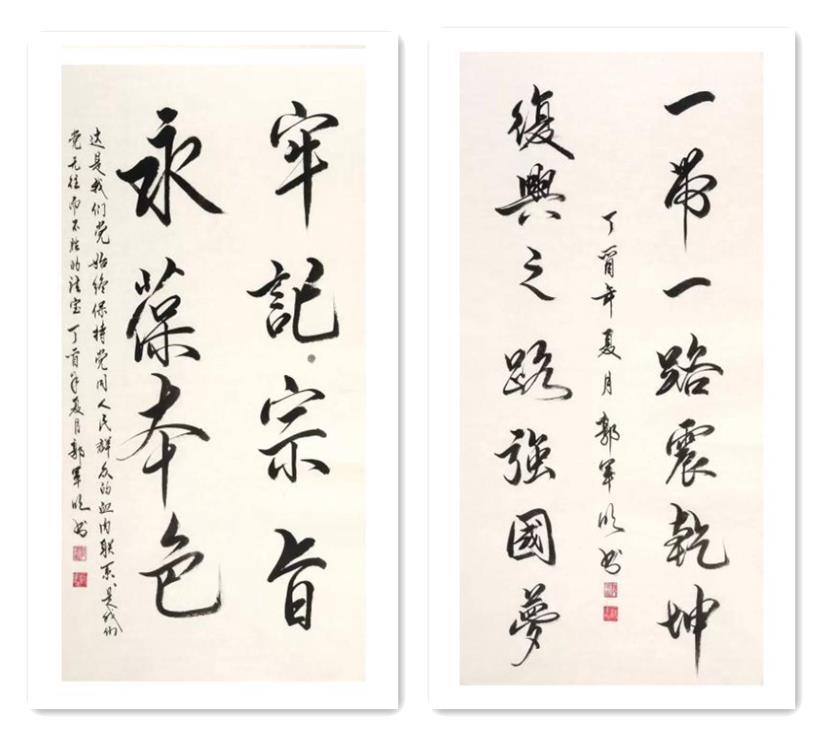 牢記宗旨
永葆本色
这是我们党始终保持党同人民群众的血肉联系是我們
党无往而不胜的法宝 丁酉年夏月郭軍书
一帶一路震乾坤
丁酉年夏月郭軍书
復興之路強國夢